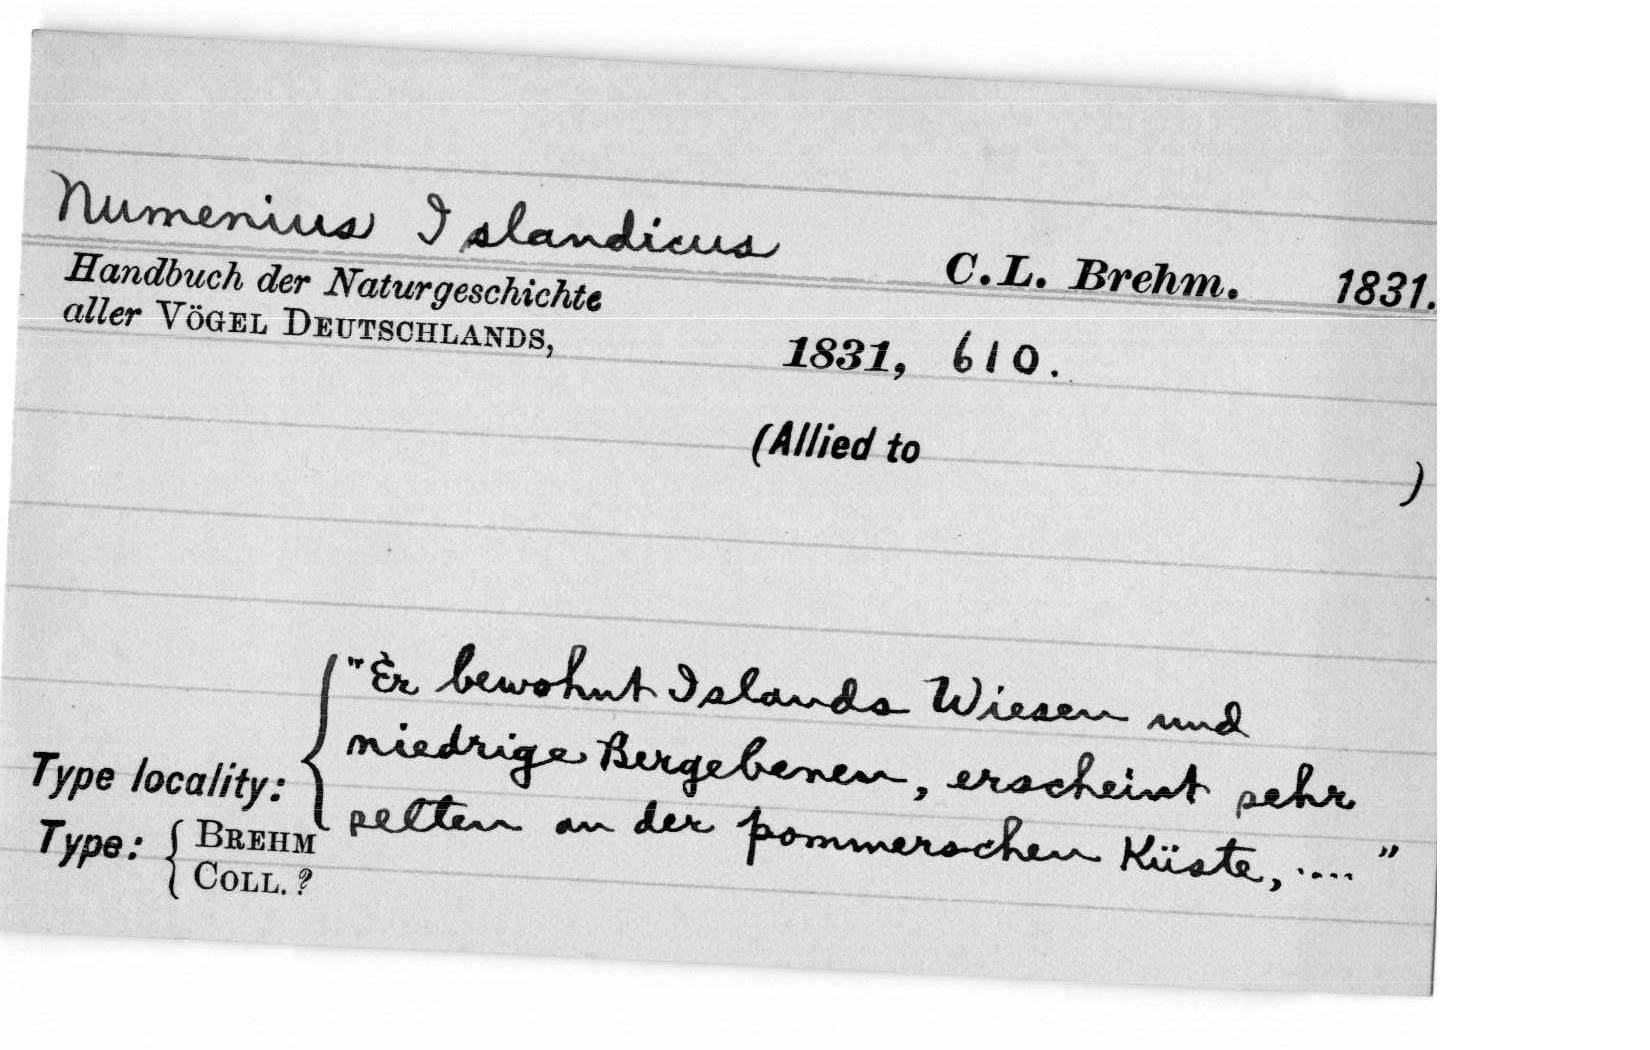 Numenius Islandicus
C.L. Brehm. 1831.
Handbuch der Naturgeschichte
aller VÖGEL DEUTSCHLANDS,
1831, 610.
(Allied to )
"Er bewohnt Islands Wiesen und
niedrige Bergebenen, erscheint sehr
selten an der pommerschen Küste, ...."
Type locality:
Type: BREHM
COLL. ?